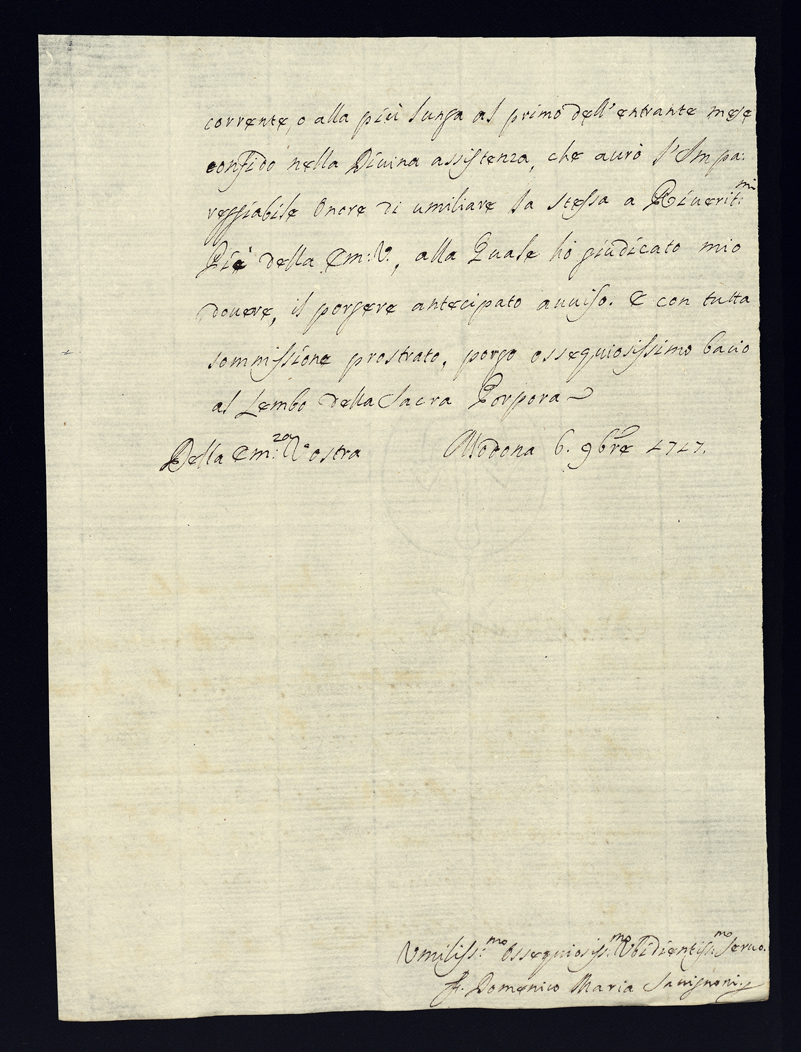 corrente, o alla più lunga al primo dell'entrante mese
confido nella Divina assistenza, che aurò l'Impa:
reggiabile Onore di umiliare la stessa a Riuerit:mi
Piè della Em: V., alla Quale hò giudicato mio
douere, il porgere antecipato auuiso. E con tutta
sommissione prostrato, porgo ossequiosissimo bacio
al Lembo della Sacra Porpora
Della Em:za Vostra Modona 6. 9bre 1747.
Vmiliss:mo Ossequiosiss:mo Vbidientiss:mo Seruo.
F. Domenico Maria Sauignoni.